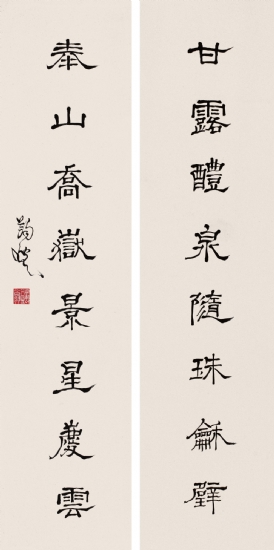 甘露醴泉隨珠龢璧
泰山喬嶽景星慶雲